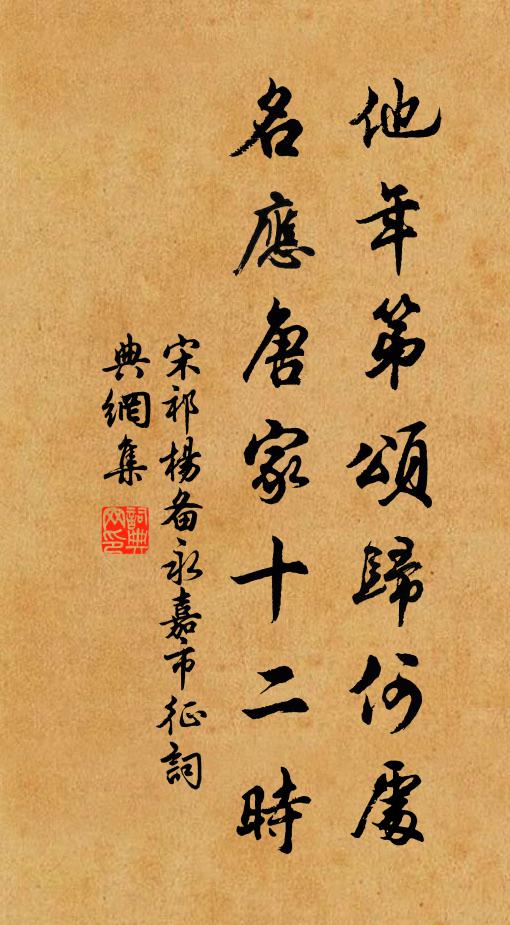 他年第頌歸何處
名應唐家十二時
宋祁楊备永嘉市征詞
典網集
詞典
网印